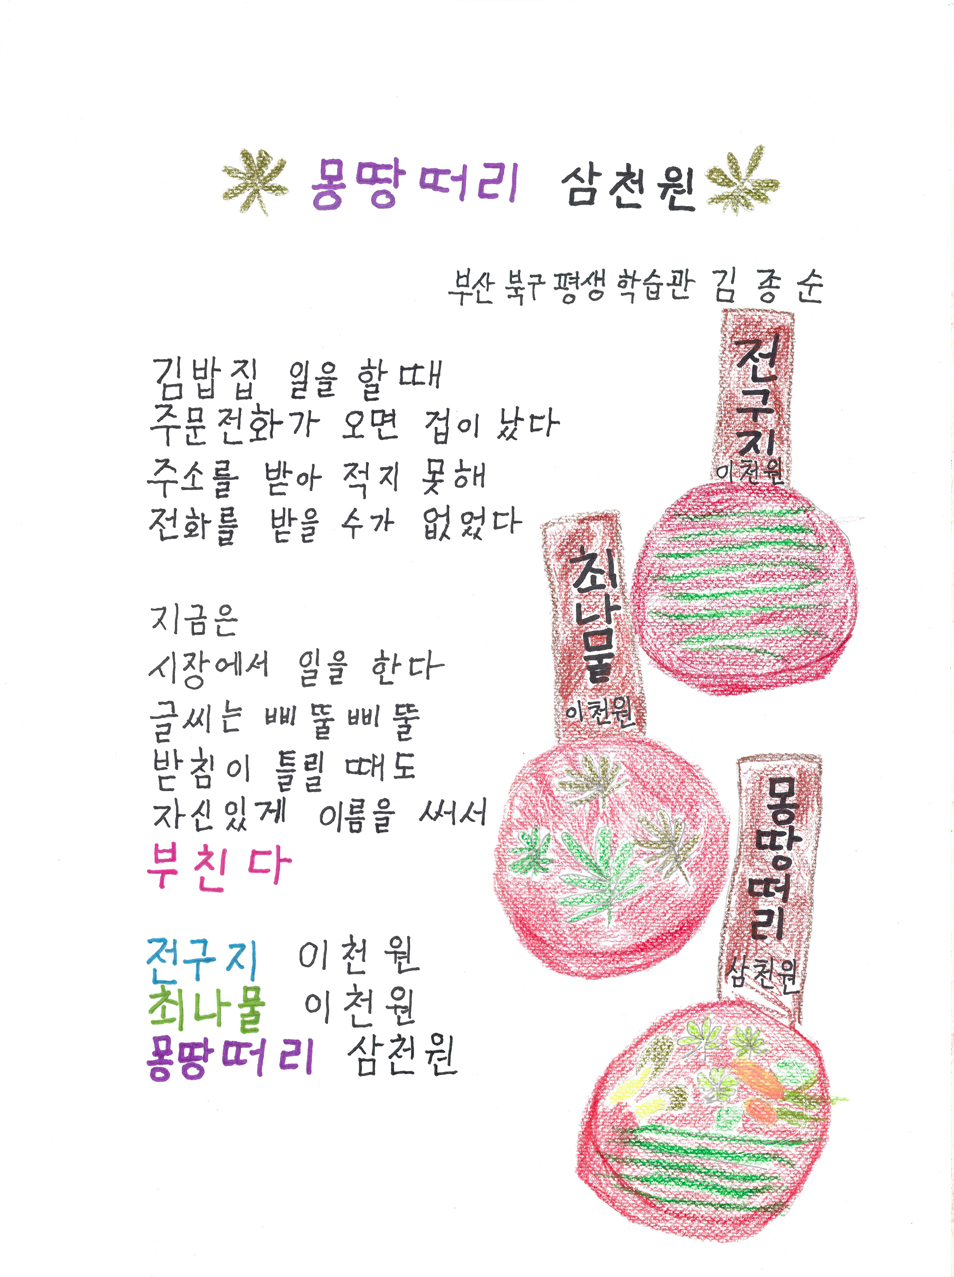 몽땅떠리 삼천원
부산 북구 평생 학습관 김종순
김밥집 일을 할때
주문전화가 오면 겁이 났다
주소를 받아 적지 못해
전화를 받을 수가 없었다
지금은
시장에서 일을 한다
글씨는 삐뚤삐뚤
받침이 틀릴 때도
자신있게 이름을 써서
부친다
전구지 이천원
최나물 이천원
몽땅떠리 삼천원
전구지
이천원
최나물
이천원
몽땅떠리
삼천원